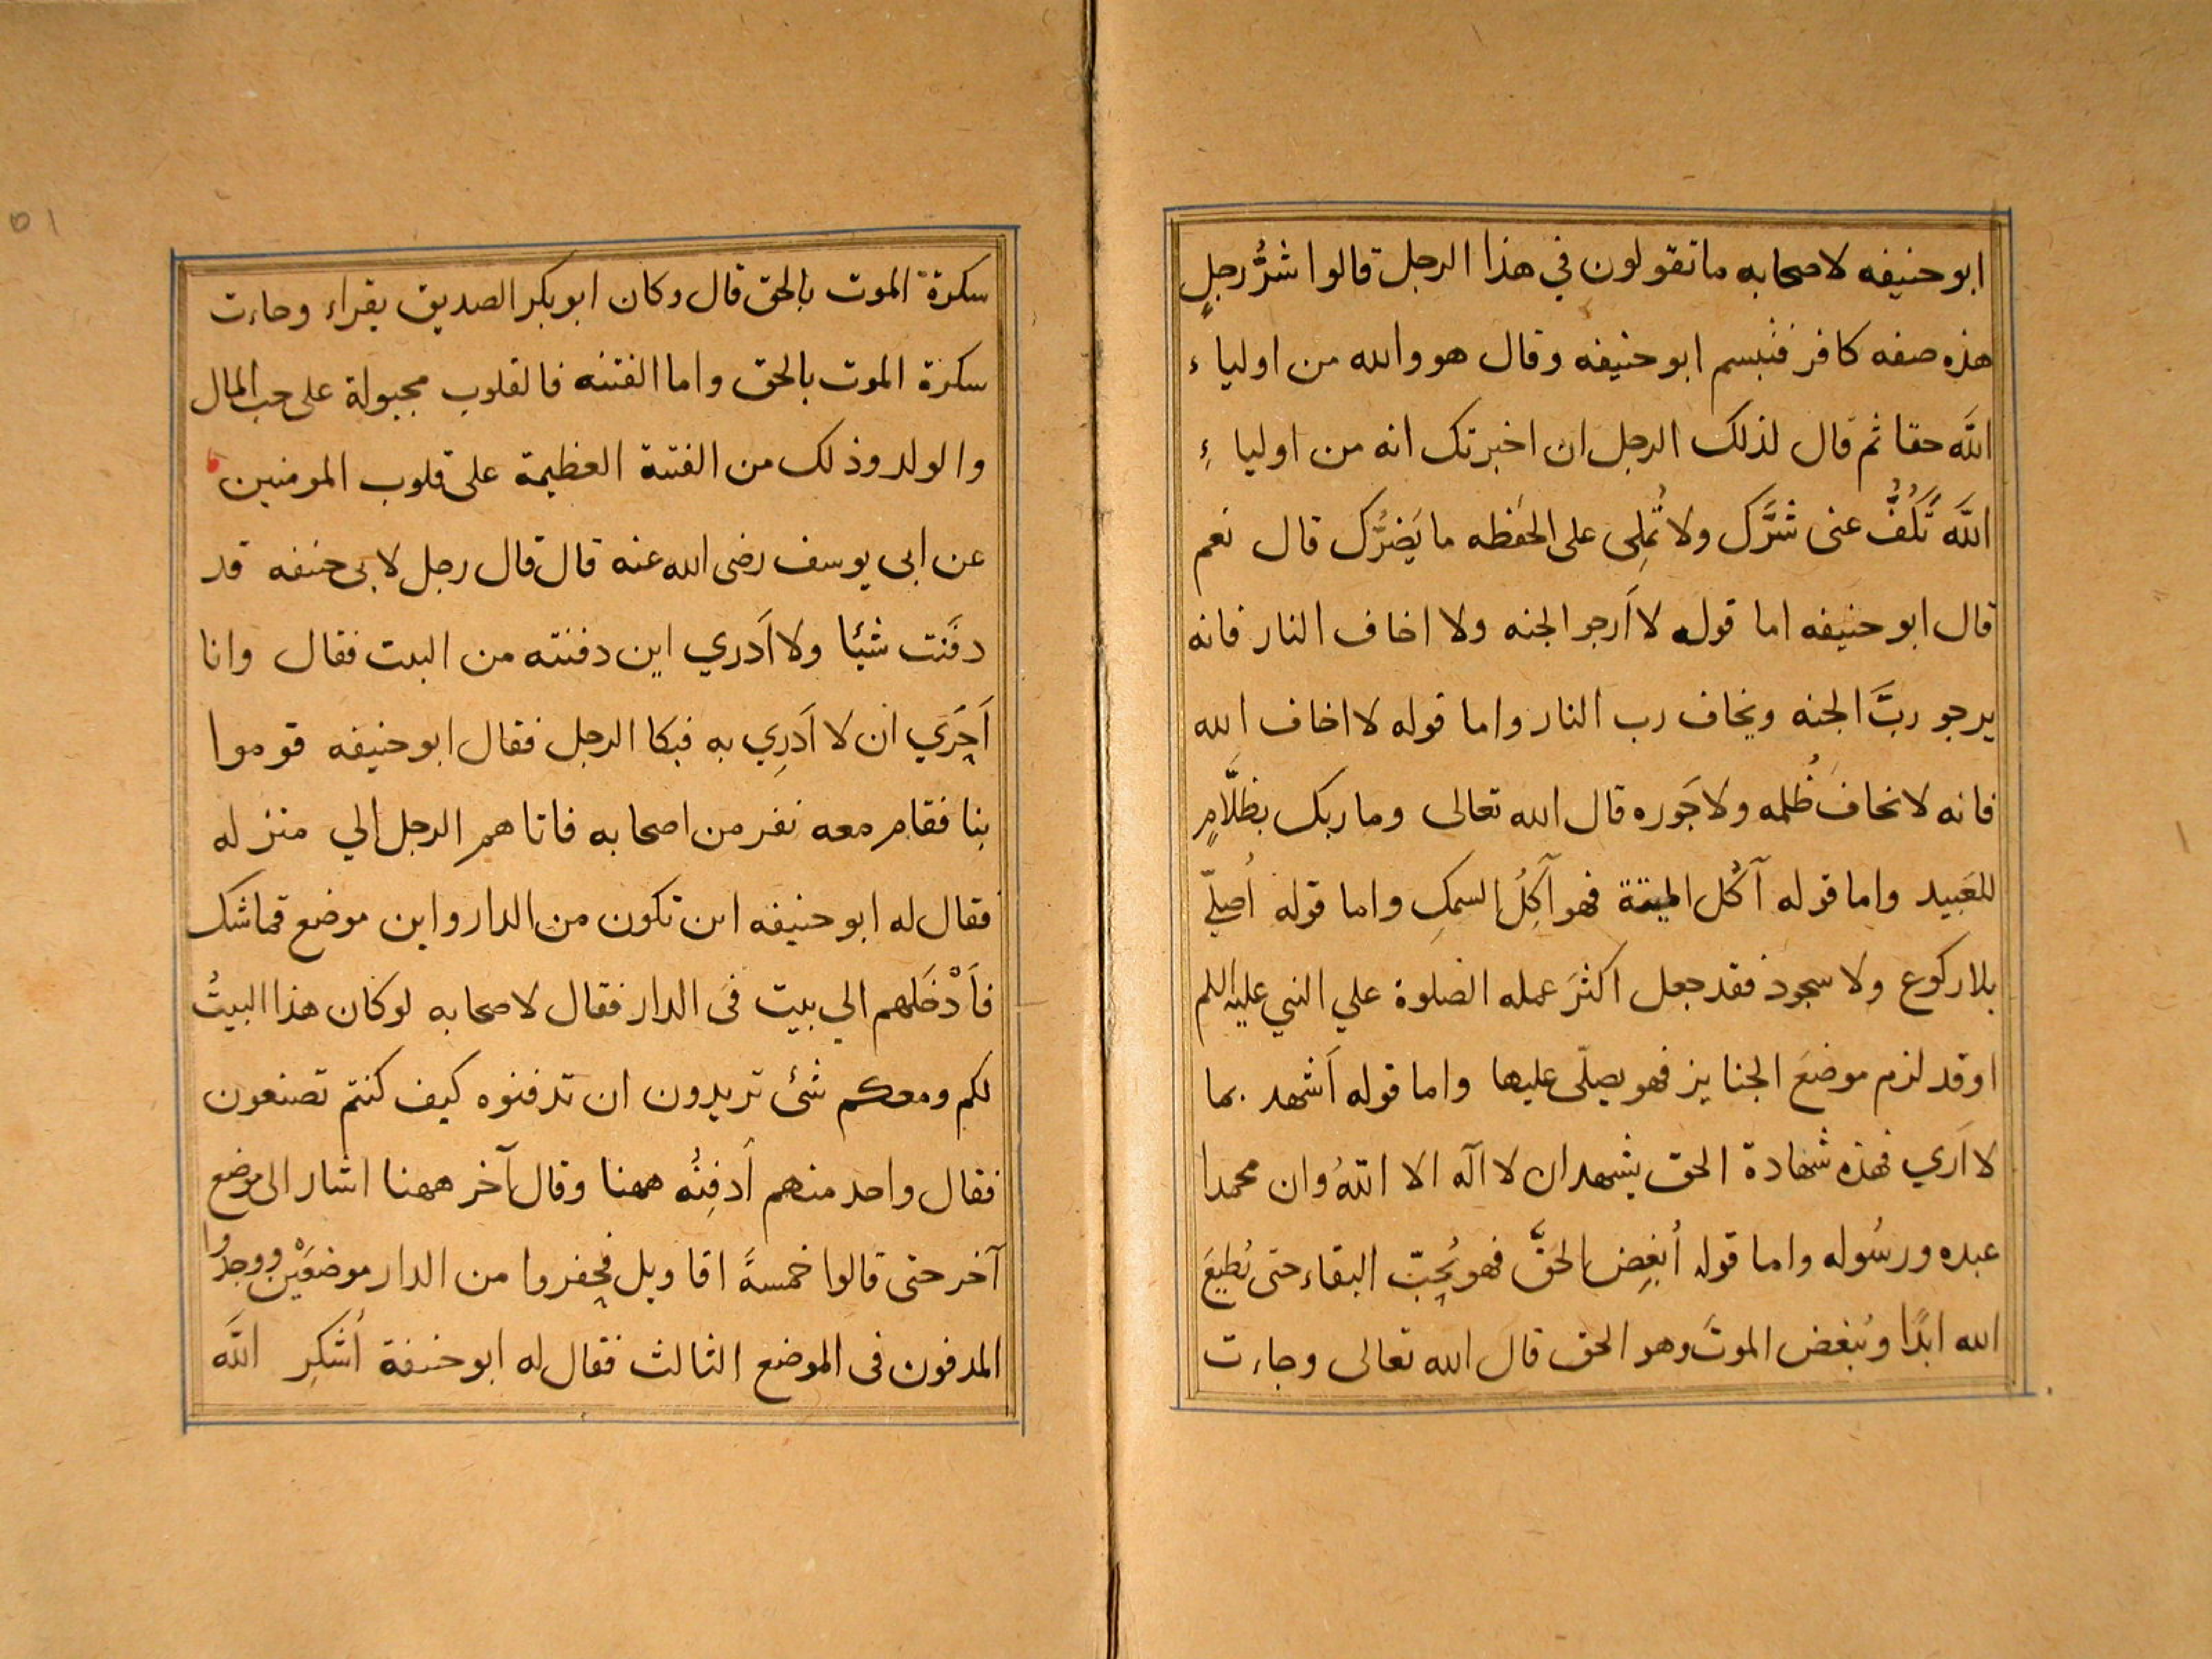 ابو حنيفه لاصحابه ما تقولون في هذا الرجل قالوا شرُّ رجلٍ
هذه صفه كافر فتبسم ابو حنيفه وقال هو والله من اولياء
اللَّه حقا ثم قال لذلك الرجل ان اخبرتك انه من اولياءِ
اللَّه تَكُفُّ عنى شرَّك ولا تُملِى على الحَفظه ما يَضرُّك قال نعم
قال ابو حنيفه اما قوله لا اَرجو الجنه ولا اخاف النار فانه
يرجو ربَّ الجنه ويخاف رب النار واما قوله لا اخاف الله
فانه لا نخاف ظُلمه ولا جَوره قال الله تعالى وما ربك بظلَّامٍ
للعَبيد واما قوله آكُل الميتة فهو آكِلُ السمكِ واما قوله اُصلّي
بلا ركوع ولا سجود فقد جعل اكثرَ عمله الصلوة علي النبي عليه السلم
او قد لزم موضعَ الجنايز فهو يصلّى عليها واما قوله اَشهد بما
لا اَري فهذه شهادة الحق يشهد ان لا آله الا اللّهُ وان محمدا
عبده ورسُوله واما قوله اُبغِض الحَقَّ فهو يُحِبّ البقاء حتى يُطيعَ
الله ابدًا ويُبغض الموتَ وهو الحق قال الله تعالى وجاءت
سكرة الموت بالحق قال وكان ابو بكر الصديق يقراء وجاءت
سكرة الموت بالحق واما الفتنه فالقلوب مجبولة على حب المال
والولد وذلك من الفتنة العظيمة على قلوب المومنين
عن ابى يوسف رضى الله عنه قال قال رجل لابى حنفه قد
دفَنت شيئا ولا اَدري اين دفنته من البيت فقال وانا
اَحِرَي ان لا اَدرِي به فبكا الرجل فقال ابو حنيفه قوموا
بنا فقام معه نفر من اصحابه فاتاهم الرجل الي منزله
فقال له ابو حنيفه اين تكون من الدار واين موضع قماشك
فاَدْخَلهم الي بيت فى الدار فقال لاصحابه لو كان هذا البيتُ
لكم ومعكم شئ تريدون ان تدفنوه كيف كنتم تصنعون
فقال واحد منهم اَدفِنُه ههنا وقال آخر ههنا اشار الى موضع
آخر حتى قالوا خمسةَ اقاويل فحِفروا من الدار موضعَيْن ووجدوا
المدفون فى الموضع الثالث فقال له ابو حنفة اُشكِر اللَّه